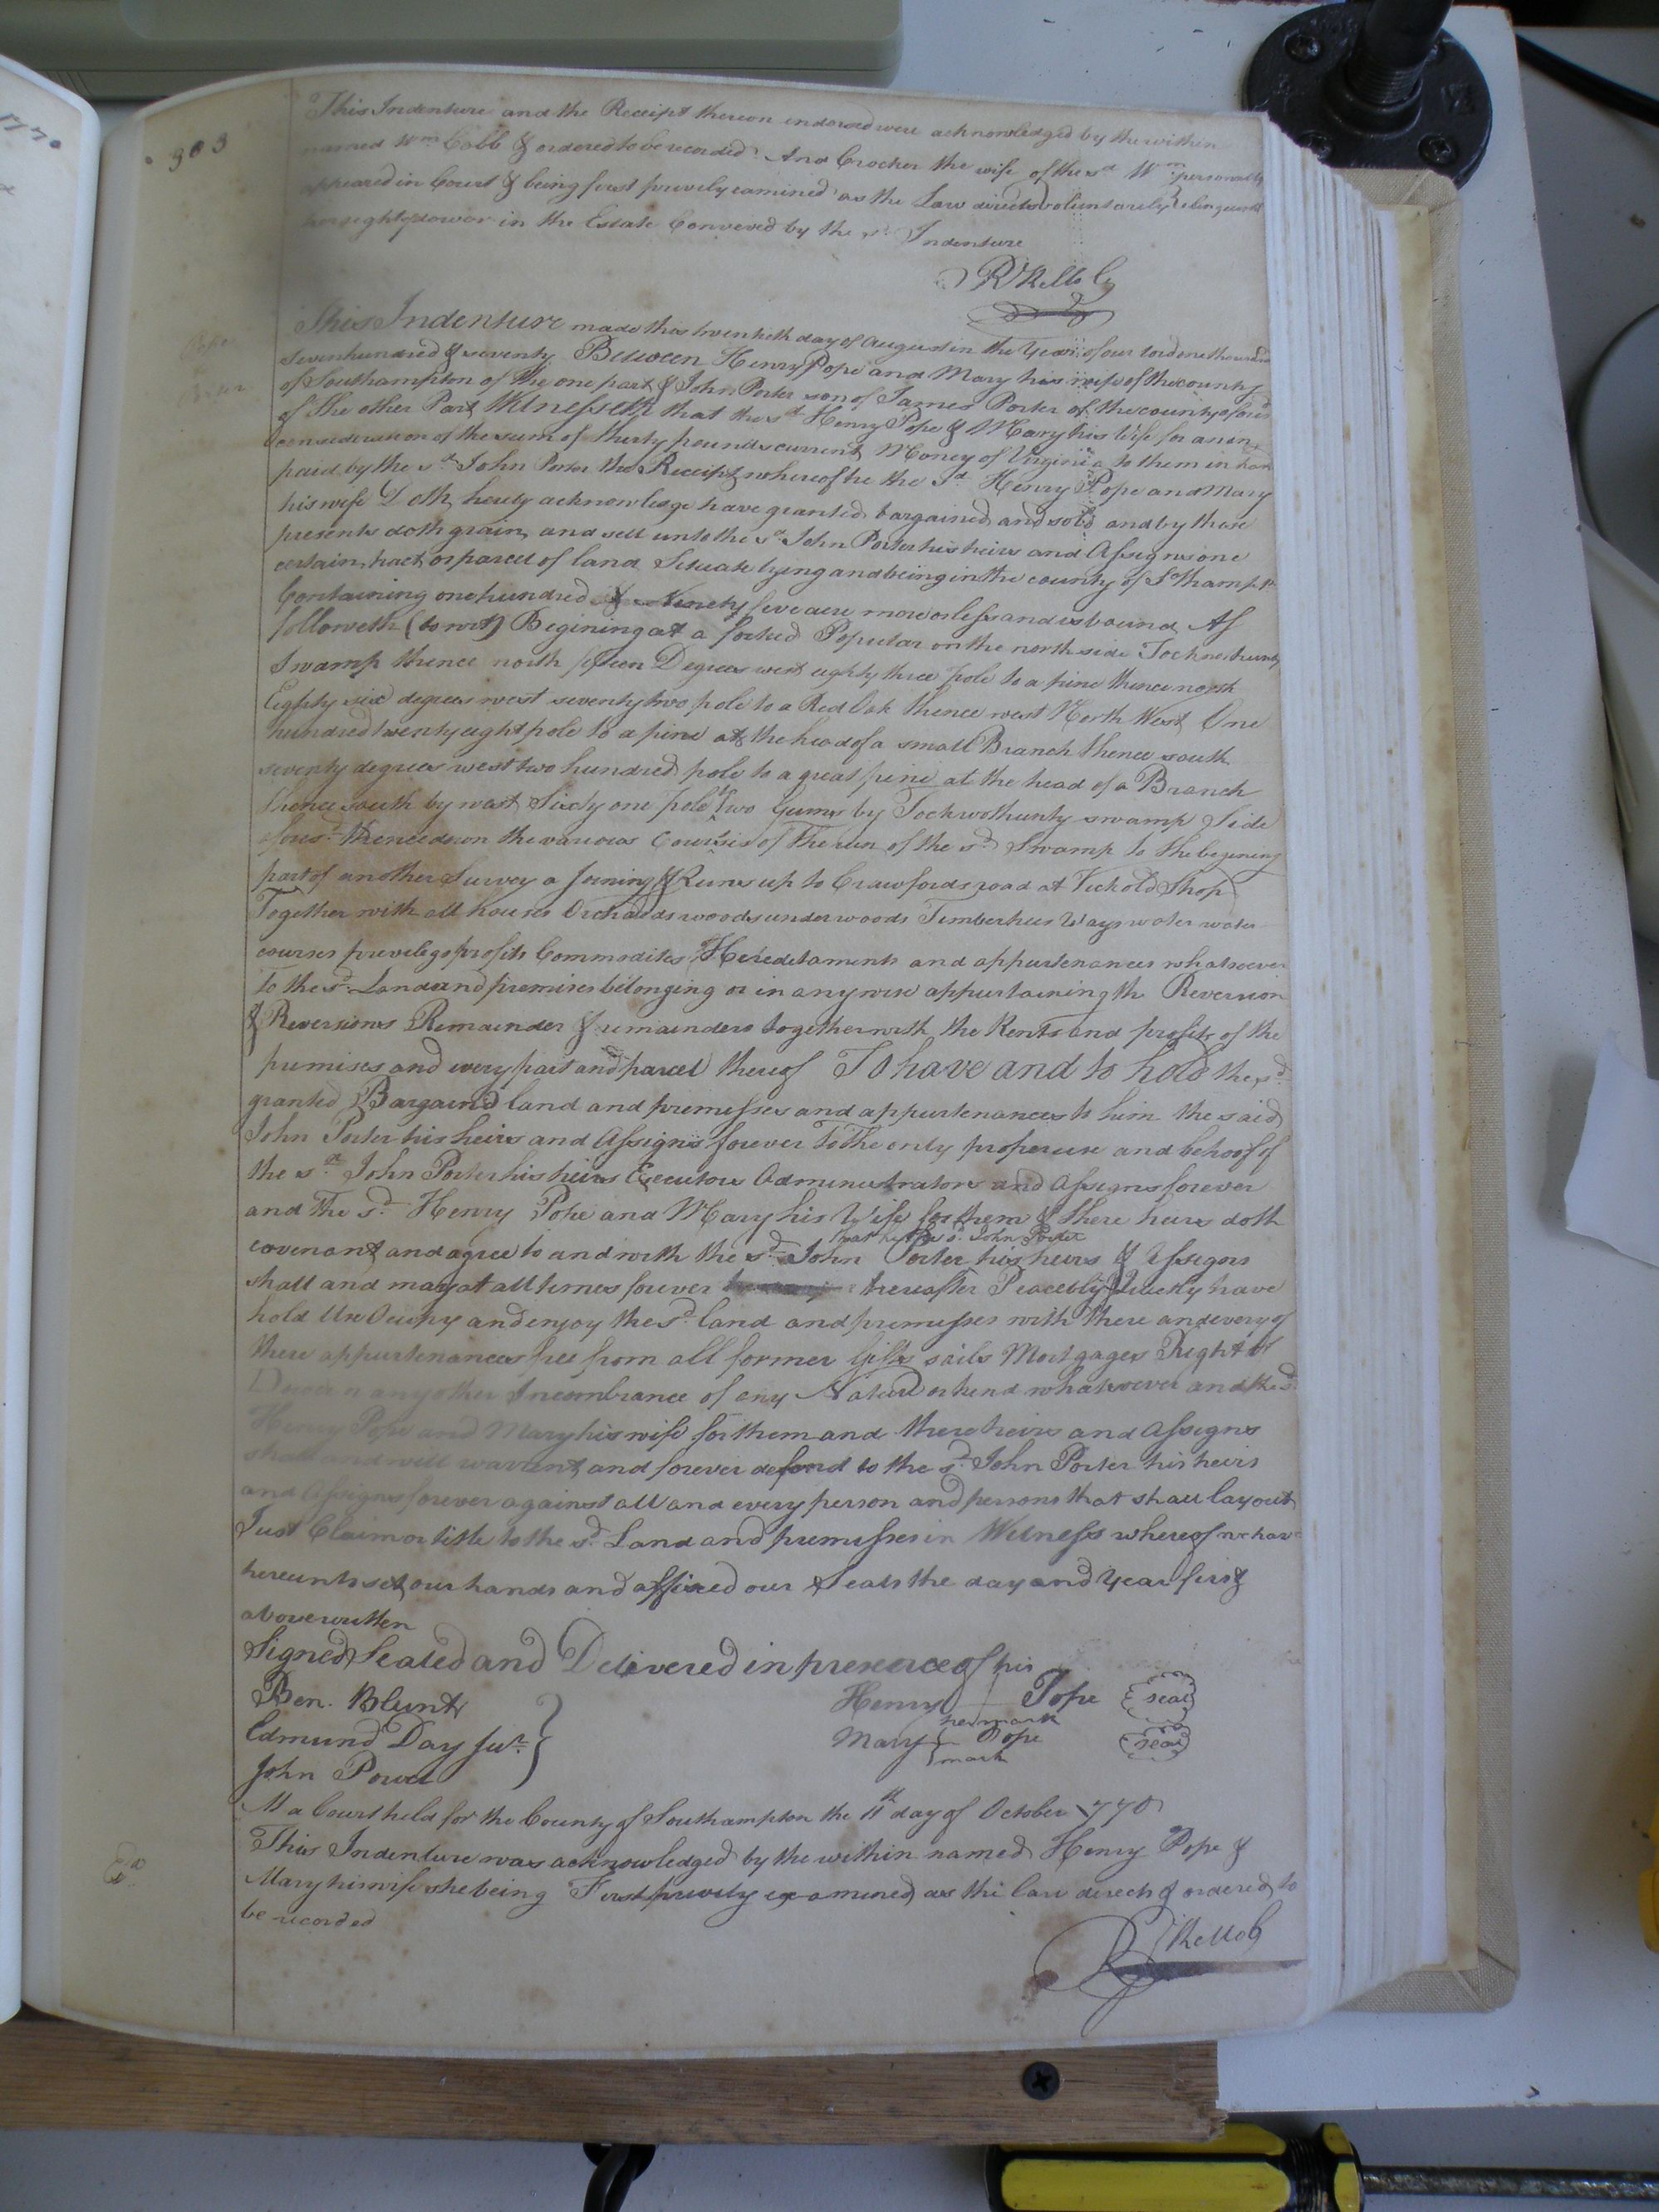 1770
303
This Indenture and the Receipt thereon endorsed were acknowledged by the within
named Wm Cobb & ordered to be recorded And Crocker the wife of the sd Wm personally
appeared in Court & being first privily examined as the Law directs voluntarily relinquish
her right of dower in the Estate Conveyed by the sd Indenture
R Kello C
Pope
to
Porter
This Indenture made this twentieth day of August in the Year of our lord one thousand
sevenhundred & seventy Between Henry Pope and Mary his wife of the county
of Southampton of the one part & John Porter son of James Porter of the county aforesd
of the other Part Witnesseth that the sd Henry Pope & Mary his Wife for and in
consideration of the sum of thirty pounds current Money of Virginia to them in hand
paid by the sd John Porter the Receipt whereof he the sd Henry Pope and Mary
his wife Doth hereby acknowledge have granted bargained and sold and by these
presents doth grain and sell unto the sd John Porter his heirs and Assigns one
certain tract or parcel of land Situate lying and being in the county of S.thampn
Containing one hundred & Ninety five acre more or less and is bound As
followeth (to wit) Begining at a forked Popular on the north side
Swamp thence north fifteen Degrees west eighty three pole to a pine thence north
Eighty six degrees west seventy two pole to a Red Oak thence west North West One
hundred twenty eight pole to a pine at the head of a small Branch thence south
seventy degrees west two hundred pole to a great pine at the head of a Branch
thence south by west Sixty one pole to two Gums by Tockwothunty swamp Side
aforsd thence down the various Courses of The run of the sd Swamp to the begening
part of another Survey a Joining & Runs up to Crawfords road at Shop
Together with all houses Orchards woods underwoods Timbertrees Ways water water
courses previlegs profits Commodites Hereditaments and appurtenances whatsoever
To the sd Land and premises belonging or in any wise appurtaining the Reversion
& Reversions Remainder & remainders together with the Rents and profits of the
premises and every part and parcel thereof To have and to hold the sd
granted Bargaind land and premesses and appurtenances to him the said
John Porter his heirs and Assigns forever To the only proper use and behoof of
the sd John Porter his heirs Executors Administrators and Assigns forever
and The sd Henry Pope and Mary his Wife for them & there heirs doth
covenant and agree to and with the sd John Porter his heirs & Assigns
that he the sd John Porter
shall and may at all times forever hereafter Peacebly & Quiekly have
hold Use Ocupy and enjoy the sd land and premesses with there and every of
there appurtenances free from all former Gifts sails Mortgages Right of
Dower or any other Incombrance of any Nature or kend whatsoever and the sd
Henry Pope and Mary his wife for them and there heirs and Assigns
shall and will warrent and forever defend to the sd John Porter his heirs
and Assigns forever against all and every person and persons that shall lay out
Just Claim or title to the sd Land and premesses in Witness whereof we have
hereunto set our hands and affixed our Seals the day and Year first
above written
Signed Sealed and Delivered in presence of
his
Ben. Blunt
Henry Pope seal
mark
Edmund Day Junr
her
Mary Pope seal
mark
John Powel
At a Court held for the County of Southampton the 11th day of October 1770
This Indenture was acknowledged by the within named Henry Pope &
Mary his wife she being First privily examined as the law directs & ordered to
be recorded
Ed
R Kello C